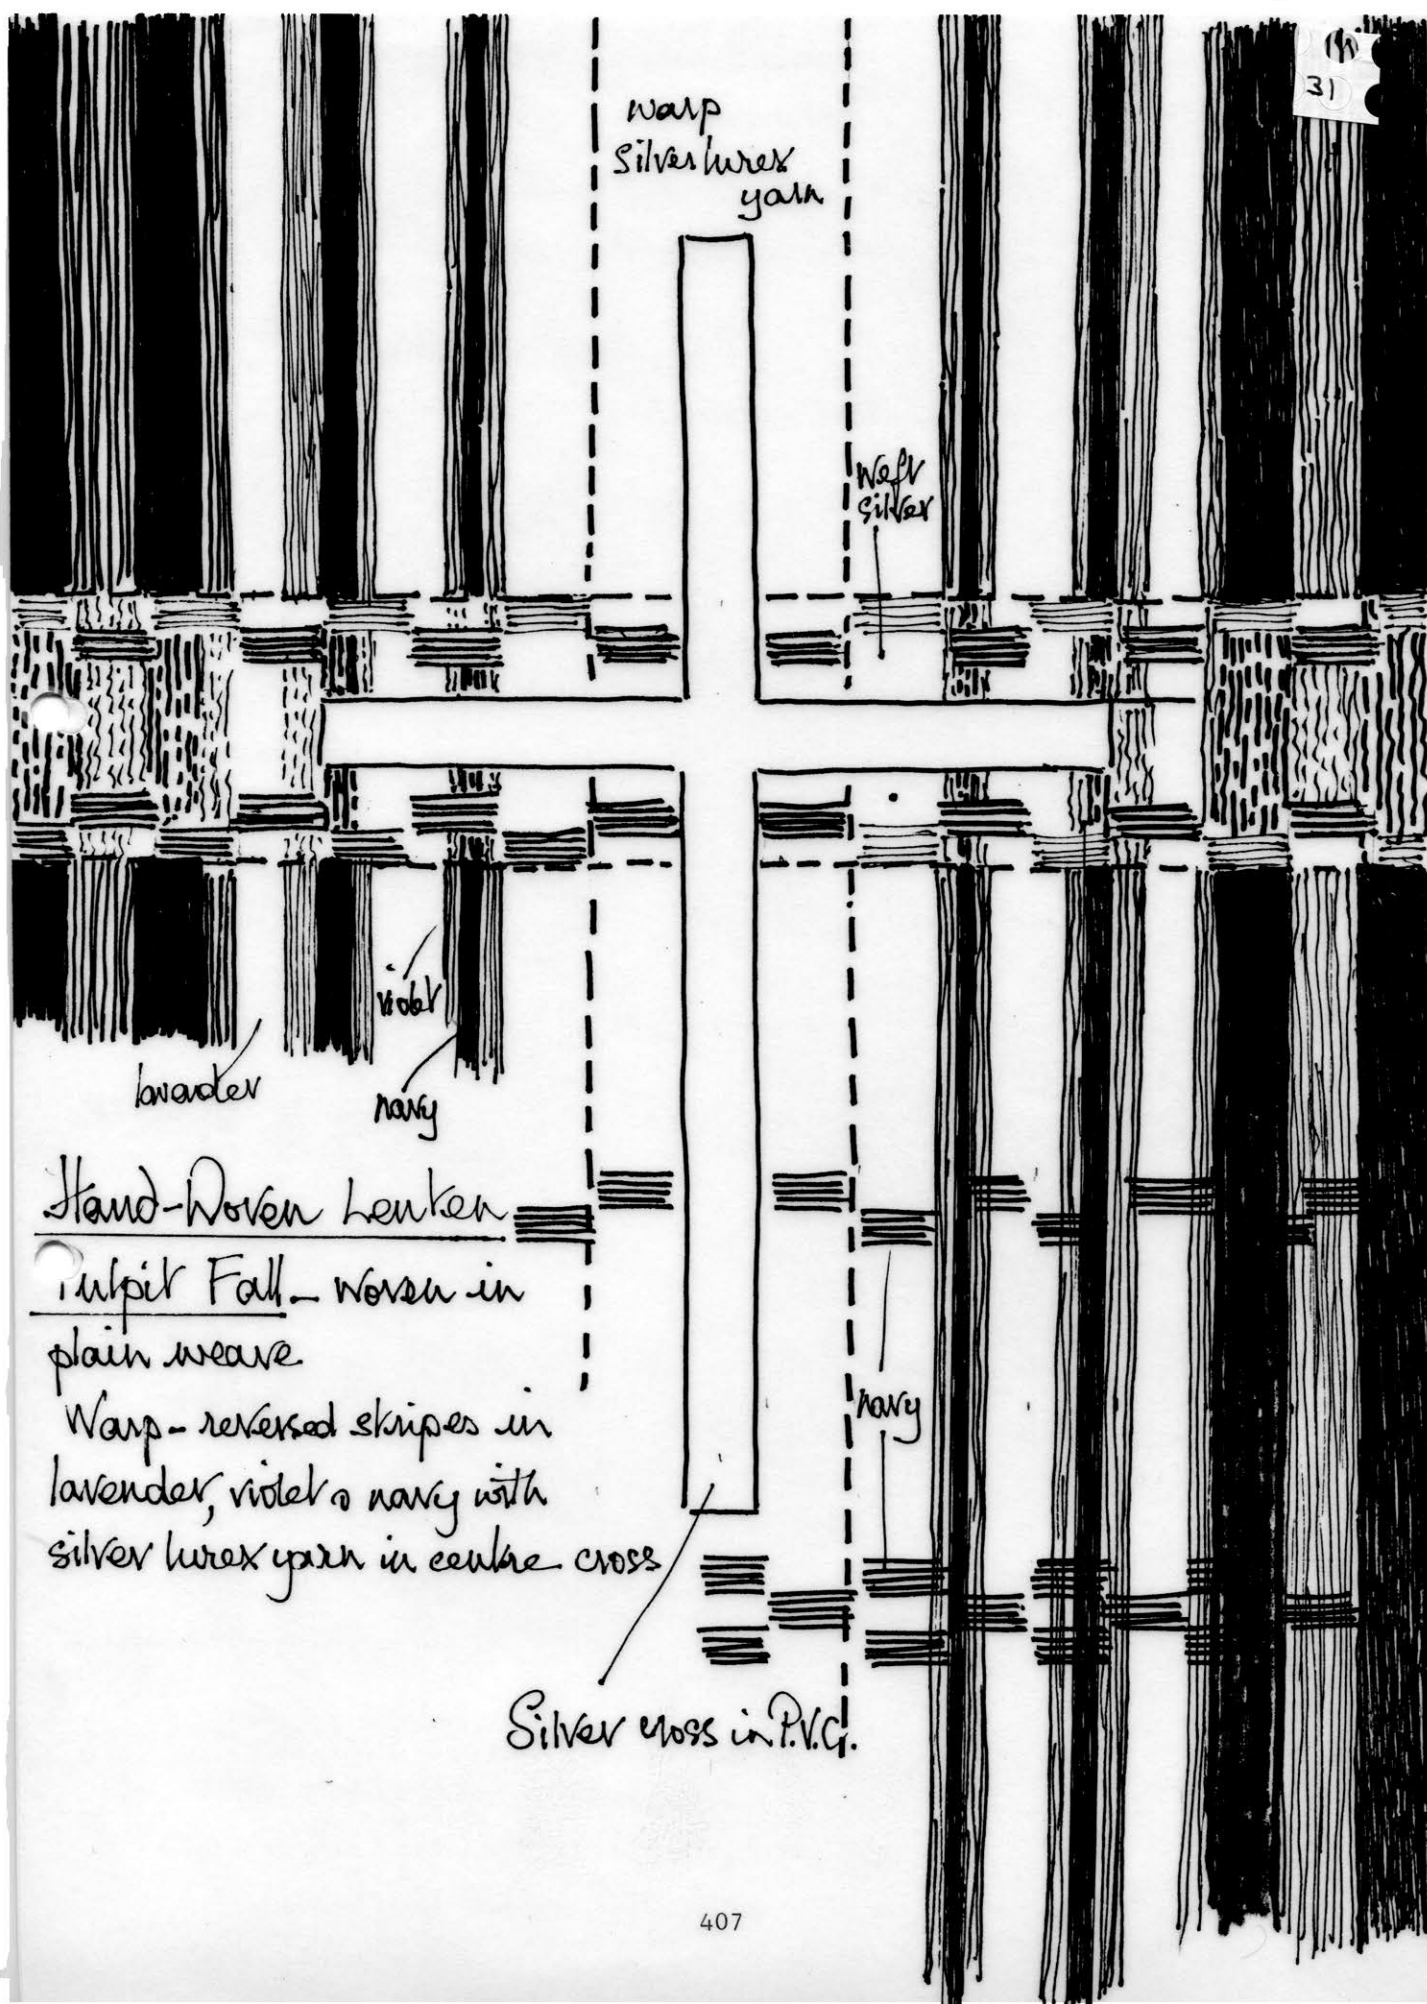 31
warp
silver lurex
yarn
weft
silver
violet
lavender
navy
Hand-Woven Lenten
Pulpit Fall - woven in
plain weave
Warp - reversed stripes in
lavender, violet & navy with
silver lurex yarn in centre cross
navy
Silver cross in P.V.C.
407